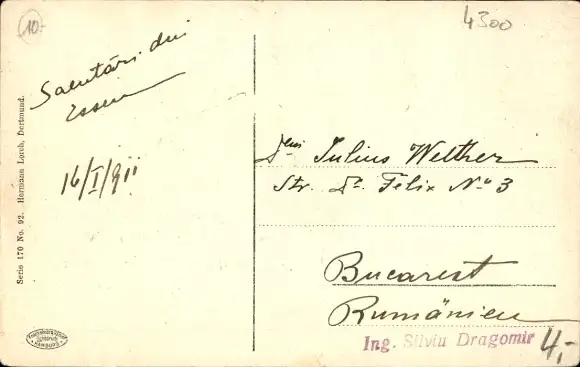 10.-
4300
Salutări din
Essen
16/I/911
Serie 170 No. 92. Hermann Lorch, Dortmund.
Dlui Julius Welther
Str. Sf. Felix No 3
Bucarest
Rumänien
Ing. Silviu Dragomir
4,-
HAMBURG